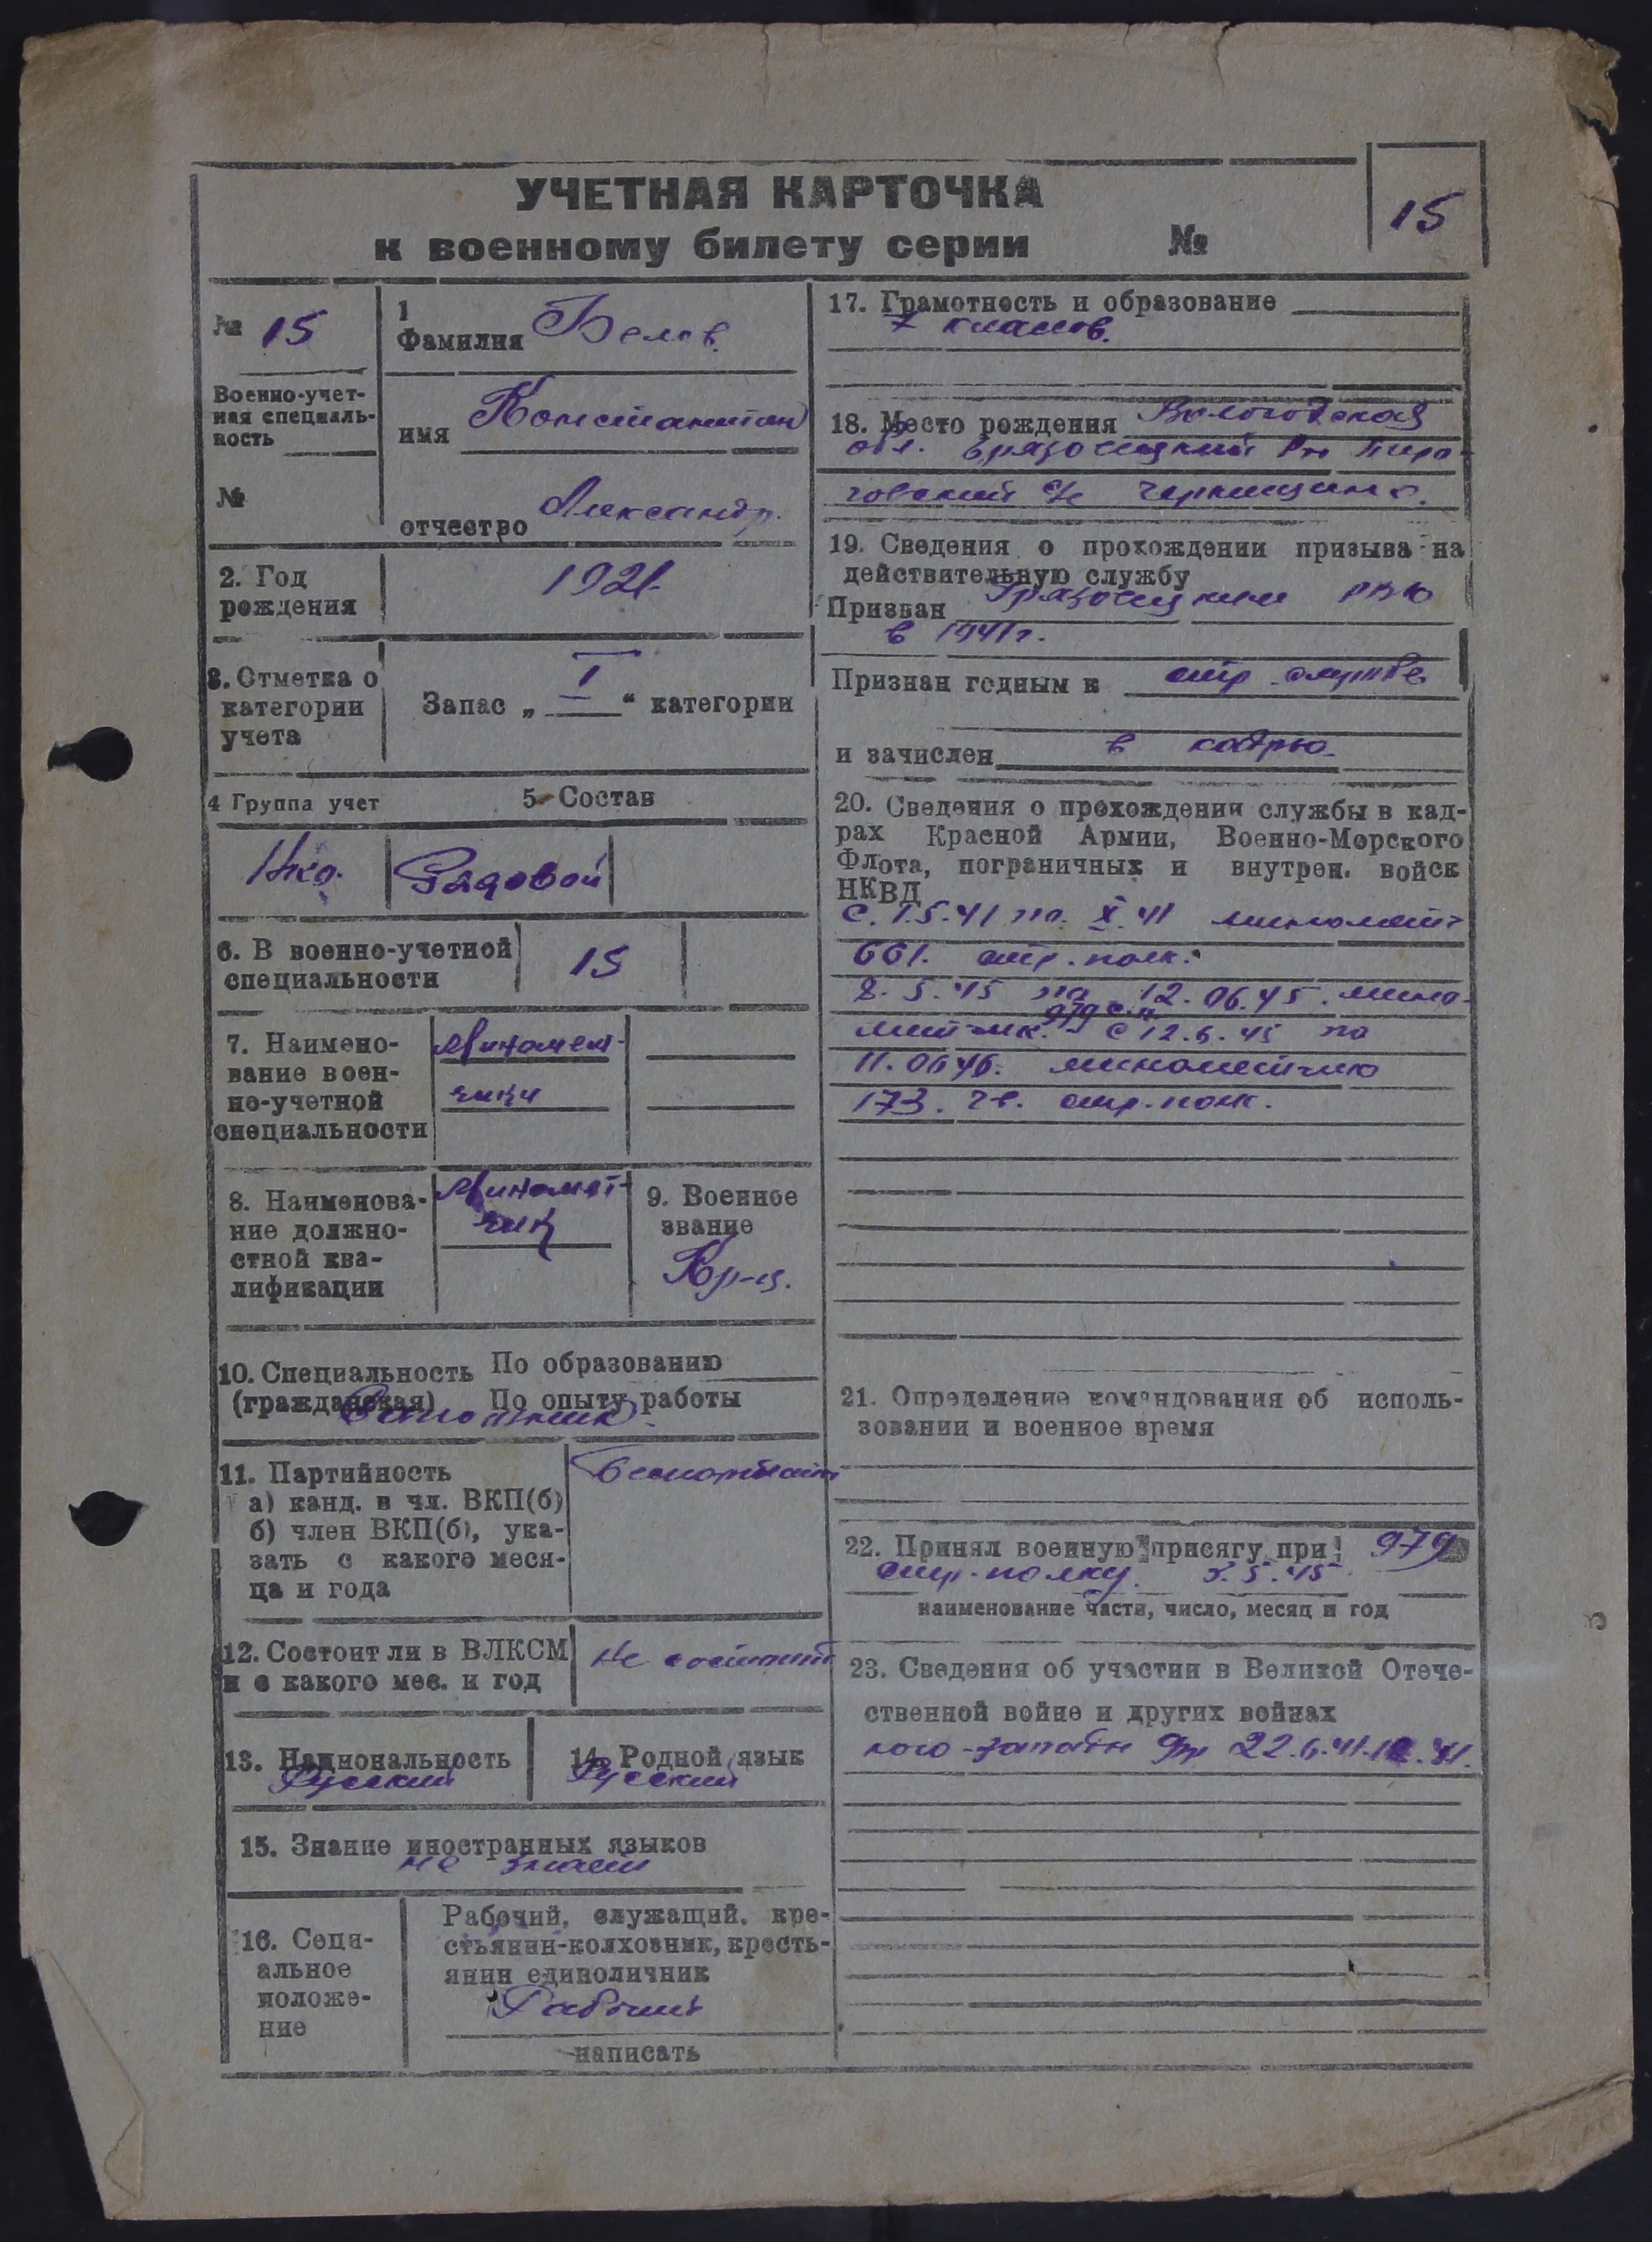 УЧЕТНАЯ КАРТОЧКА
к военному билету серии №
15
№ 15
Военно-учет-
ная специаль-
ность
№
1
Фамилия Белов.
имя Константин
отчество Александр.
2. Год
рождения
1921.
3. Отметка о
категории
учета
Запас „ I “ категории
4 Группа учет
5. Состав
Нко.
Рядовой
6. В военно-учетной
специальности
15
7. Наимено-
вание воен-
но-учетной
специальности
Миномет-
чики
8. Наименова-
ние должно-
стной ква-
лификации
Миномет-
чик
9. Военное
звание
Кр-ц.
10. Специальность По образованию
(гражданская) По опыту работы
11. Партийность
а) канд. в чл. ВКП(б)
б) член ВКП(б), ука-
зать с какого меся-
ца и года
12. Состоит ли в ВЛКСМ
и с какого мес. и год
не состоит
13. Национальность
Русский
14. Родной язык
Русский
15. Знание иностранных языков
не знает
16. Соци-
альное
положе-
ние
Рабочий, служащий, кре-
стьянин-колхозник, кресть-
янин единоличник
Рабочий
написать
17. Грамотность и образование
7 классов.
18. Место рождения Вологодская
обл. Грязовецкий р-н
с/с
19. Сведения о прохождении призыва на
действительную службу
Призван Грязовецким РВК
в 1941 г.
Признан годным к стр. службе
и зачислен в кадры
20. Сведения о прохождении службы в кад-
рах Красной Армии, Военно-Морского
Флота, пограничных и внутрен. войск
НКВД
с 1.5.41 по X.41 миномет-
661. стр. полк.
8.5.45 по 12.06.45. мино-
метчик. 979 с.п. с 12.6.45 по
11.06 46. минометчик
173. гв. стр. полк.
21. Определение командования об исполь-
зовании и военное время
22. Принял военную присягу при 979
стр. полку. 5.45
наименование части, число, месяц и год
23. Сведения об участии в Великой Отече-
ственной войне и других войнах
22.6.41.